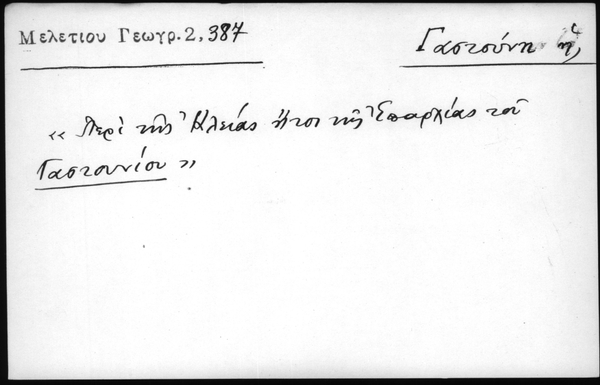 Μελετίου Γεωγρ. 2, 387
Γαστούνη ἡ,
« Περὶ τῆς Ἠλείας ἤτοι τῆς Ἐπαρχίας τοῦ
Γαστουνίου »